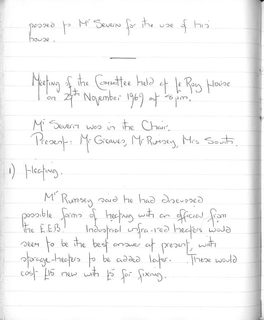 passed to Mr Severn for the use of his
house.
Meeting of the Committee held at Le Roy House
on 27th November 1969 at 8pm.
Mr Severn was in the Chair.
Present:- Mr Greaves, Mr Rumsey, Mrs South.
1) Heating.
Mr Rumsey said he had discussed
possible forms of heating with an official from
the E.E.B. Industrial infra-red heaters would
seem to be the best answer at present, with
storage heaters to be added later. These would
cost £15 new with £5 for fixing.